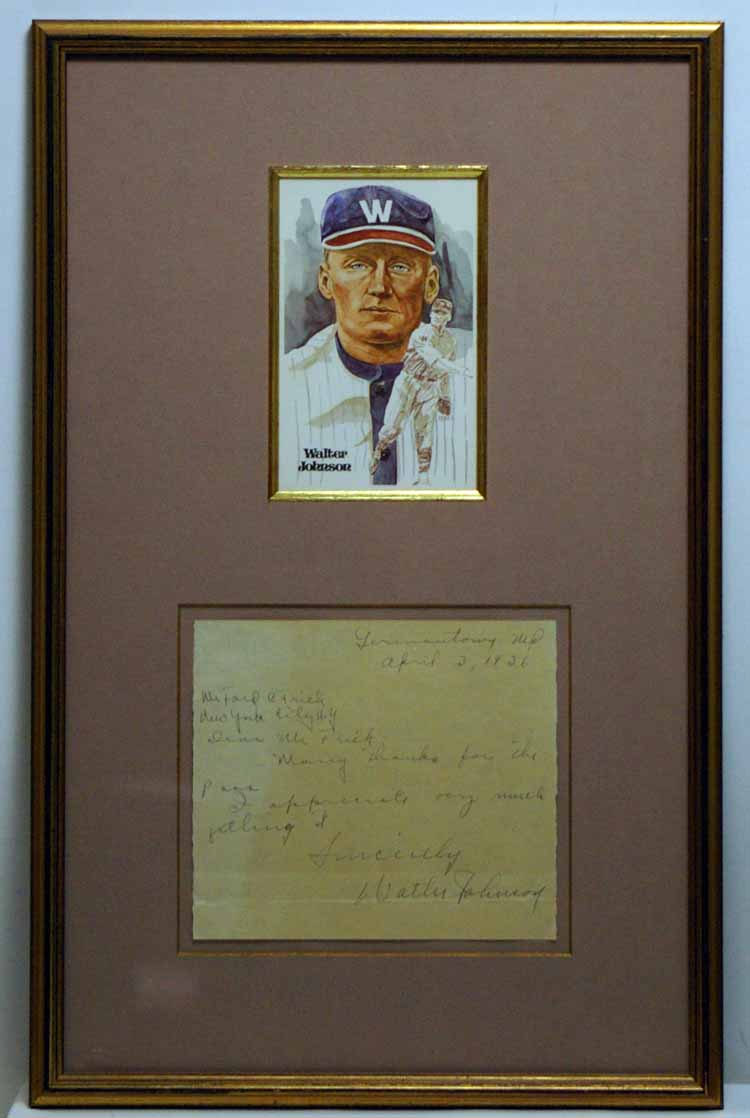 W
Walter
Johnson
Germantown, Md
April 3, 1936
Mr Ford C Frick
New York City N.Y
Dear Mr Frick,
Many thanks for the
Pass
I appreciate very much
getting it
Sincerely
Walter Johnson